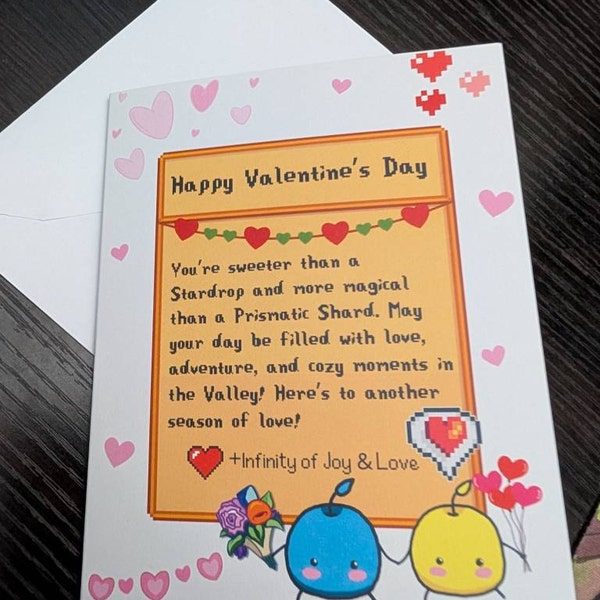 Happy Valentine's Day
You're sweeter than a
Stardrop and more magical
than a Prismatic Shard. May
your day be filled with love,
adventure, and cozy moments in
the Valley! Here's to another
season of love!
+Infinity of Joy & Love